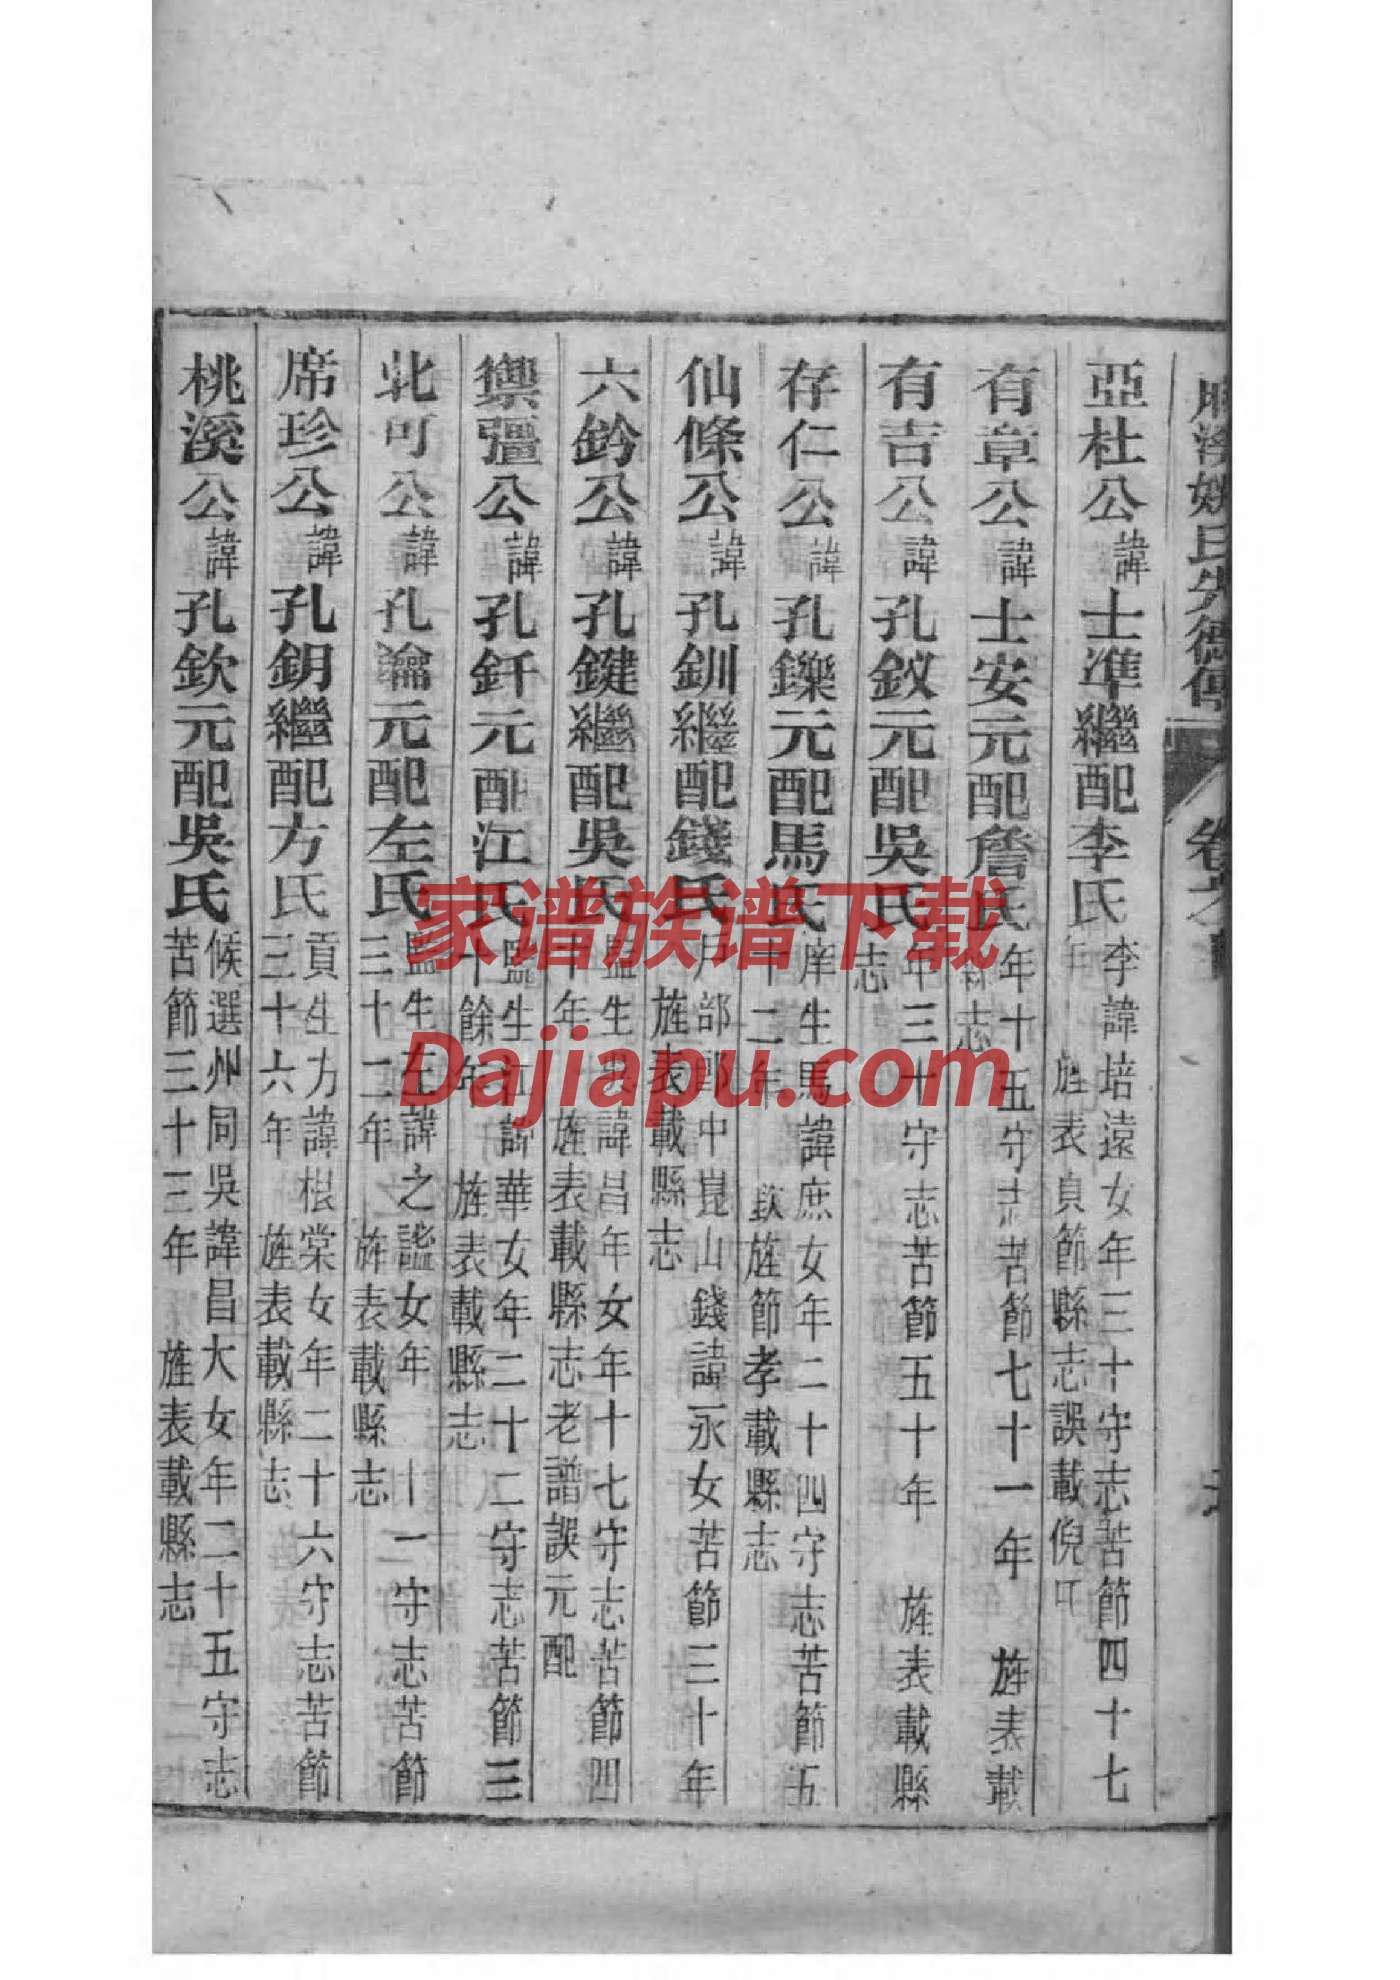 氏先德傳
卷
亞杜公諱士準繼配李氏李諱培遠女年三十守志苦節四十七
年旌表貞節縣志誤載倪
有章公諱士安元配詹氏年十五守志苦節七十一年 旌表載
縣志
有吉公諱孔釹元配吳氏年三十守志苦節五十年 旌表載縣
志
存仁公諱孔鑠元配馬氏庠生馬諱庶女年二十四守志苦節五
十二年 欽旌節孝載縣志
仙條公諱孔釧繼配錢氏戶部郎中崑山錢諱永女苦節三十年
旌表載縣志
六鈐公諱孔鍵繼配吳氏監生吳諱昌年女年十七守志苦節四
十年 旌表載縣志老譜誤元配
禦彊公諱孔釬元配江氏監生江諱華女年二十二守志苦節三
十餘年 旌表載縣志
北可公諱孔瀹元配左氏監生左諱之謐女年十一守志苦節
三十二年 旌表載縣志
席珍公諱孔鈅繼配方氏貢生方諱棠女年二十六守志苦節
三十六年 旌表載縣志
桃溪公諱孔欽元配吳氏候選州同吳諱昌大女年二十五守志
苦節三十三年 旌表載縣志
家谱族谱下载
Dajiapu.com